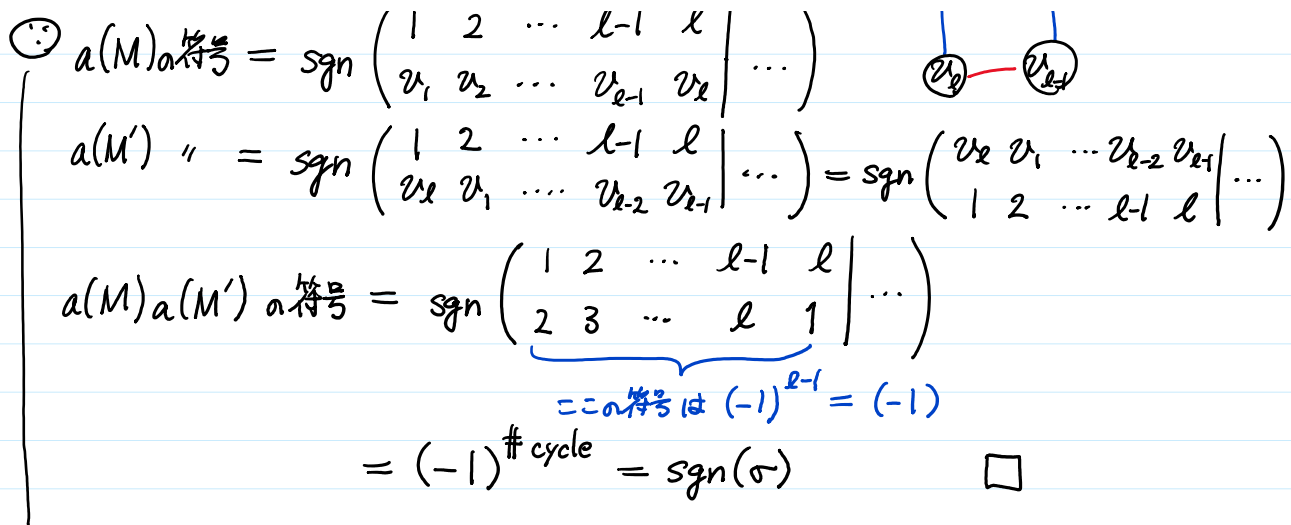 ∵ a(M)の符号 = sgn ( 1 2 … ℓ-1 ℓ | … ) v_ℓ v_{ℓ-1}
( v_1 v_2 … v_{ℓ-1} v_ℓ | … )
a(M′) 〃 = sgn ( 1 2 … ℓ-1 ℓ | … ) = sgn ( v_ℓ v_1 … v_{ℓ-2} v_{ℓ-1} | … )
( v_ℓ v_1 … v_{ℓ-2} v_{ℓ-1} | … ) ( 1 2 … ℓ-1 ℓ | … )
a(M)a(M′)の符号 = sgn ( 1 2 … ℓ-1 ℓ | … )
( 2 3 … ℓ 1 | … )
ここの符号は (-1)^{ℓ-1} = (-1)
= (-1)^{# cycle} = sgn(σ) □